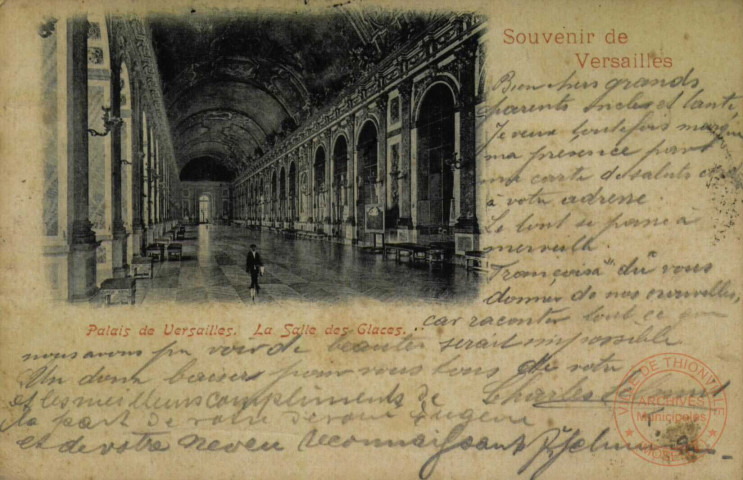 Souvenir de
Versailles
Bien chers grands
parents oncles et tante
Je veux toutefois
ma présence par
une carte de saluts
à votre adresse
Le tout se passe à
merveille.
"Françoise" du vous
donner de nos nouvelles,
Palais de Versailles. La Salle des Glaces.
car raconter tout ce que
nous avons pu voir de beautés serait impossible
Un doux baiser pour vous tous de votre
et les meilleurs compliments de Charles
la part de votre Eugène
et de votre neveu reconnaissant
VILLE DE THIONVILLE
ARCHIVES
Municipales
MOSELLE